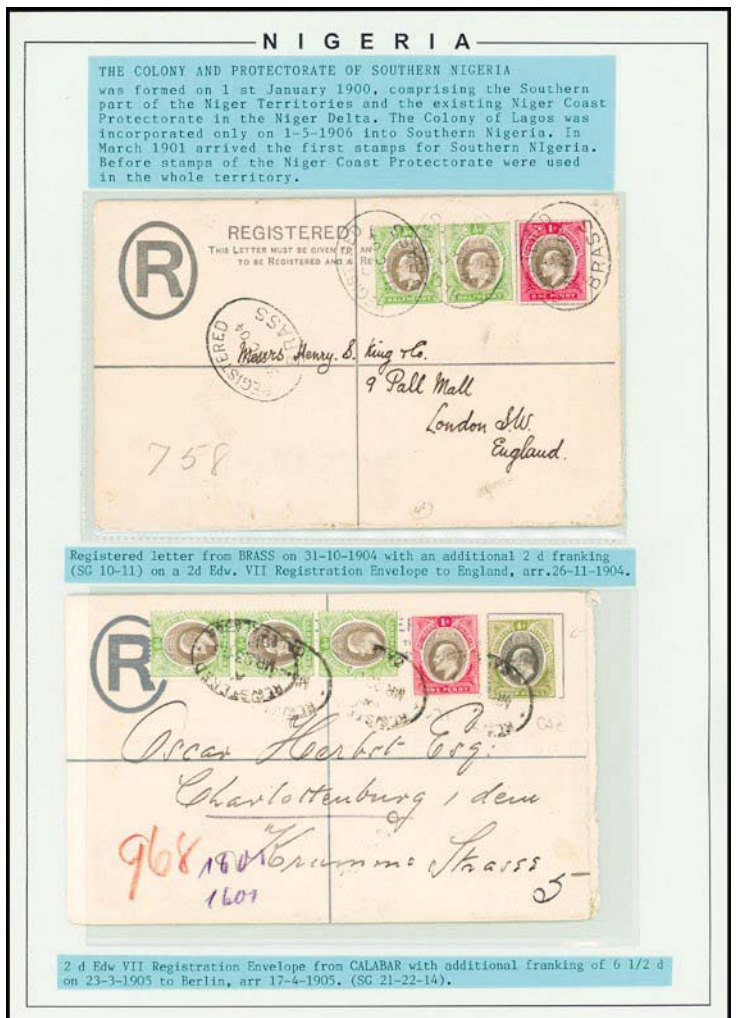 NIGERIA
THE COLONY AND PROTECTORATE OF SOUTHERN NIGERIA
was formed on 1 st January 1900, comprising the Southern
part of the Niger Territories and the existing Niger Coast
Protectorate in the Niger Delta. The Colony of Lagos was
incorporated only on 1-5-1906 into Southern Nigeria. In
March 1901 arrived the first stamps for Southern NIgeria.
Before stamps of the Niger Coast Protectorate were used
in the whole territory.
R
REGISTERED
THIS LETTER MUST BE GIVEN TO AN
TO BE REGISTERED AND A RE
HALFPENNY HALFPENNY ONE PENNY
BRASS
REGISTERED
BRASS
Messrs Henry S. King & Co.
9 Pall Mall
London S.W.
England.
758
Registered letter from BRASS on 31-10-1904 with an additional 2 d franking
(SG 10-11) on a 2d Edw. VII Registration Envelope to England, arr.26-11-1904.
R
1d
ONE PENNY
REGISTERED
Oscar Herbst Esq:
Charlottenburg
Krumme Strasse
5
968
1601
1601
2 d Edw VII Registration Envelope from CALABAR with additional franking of 6 1/2 d
on 23-3-1905 to Berlin, arr 17-4-1905. (SG 21-22-14).